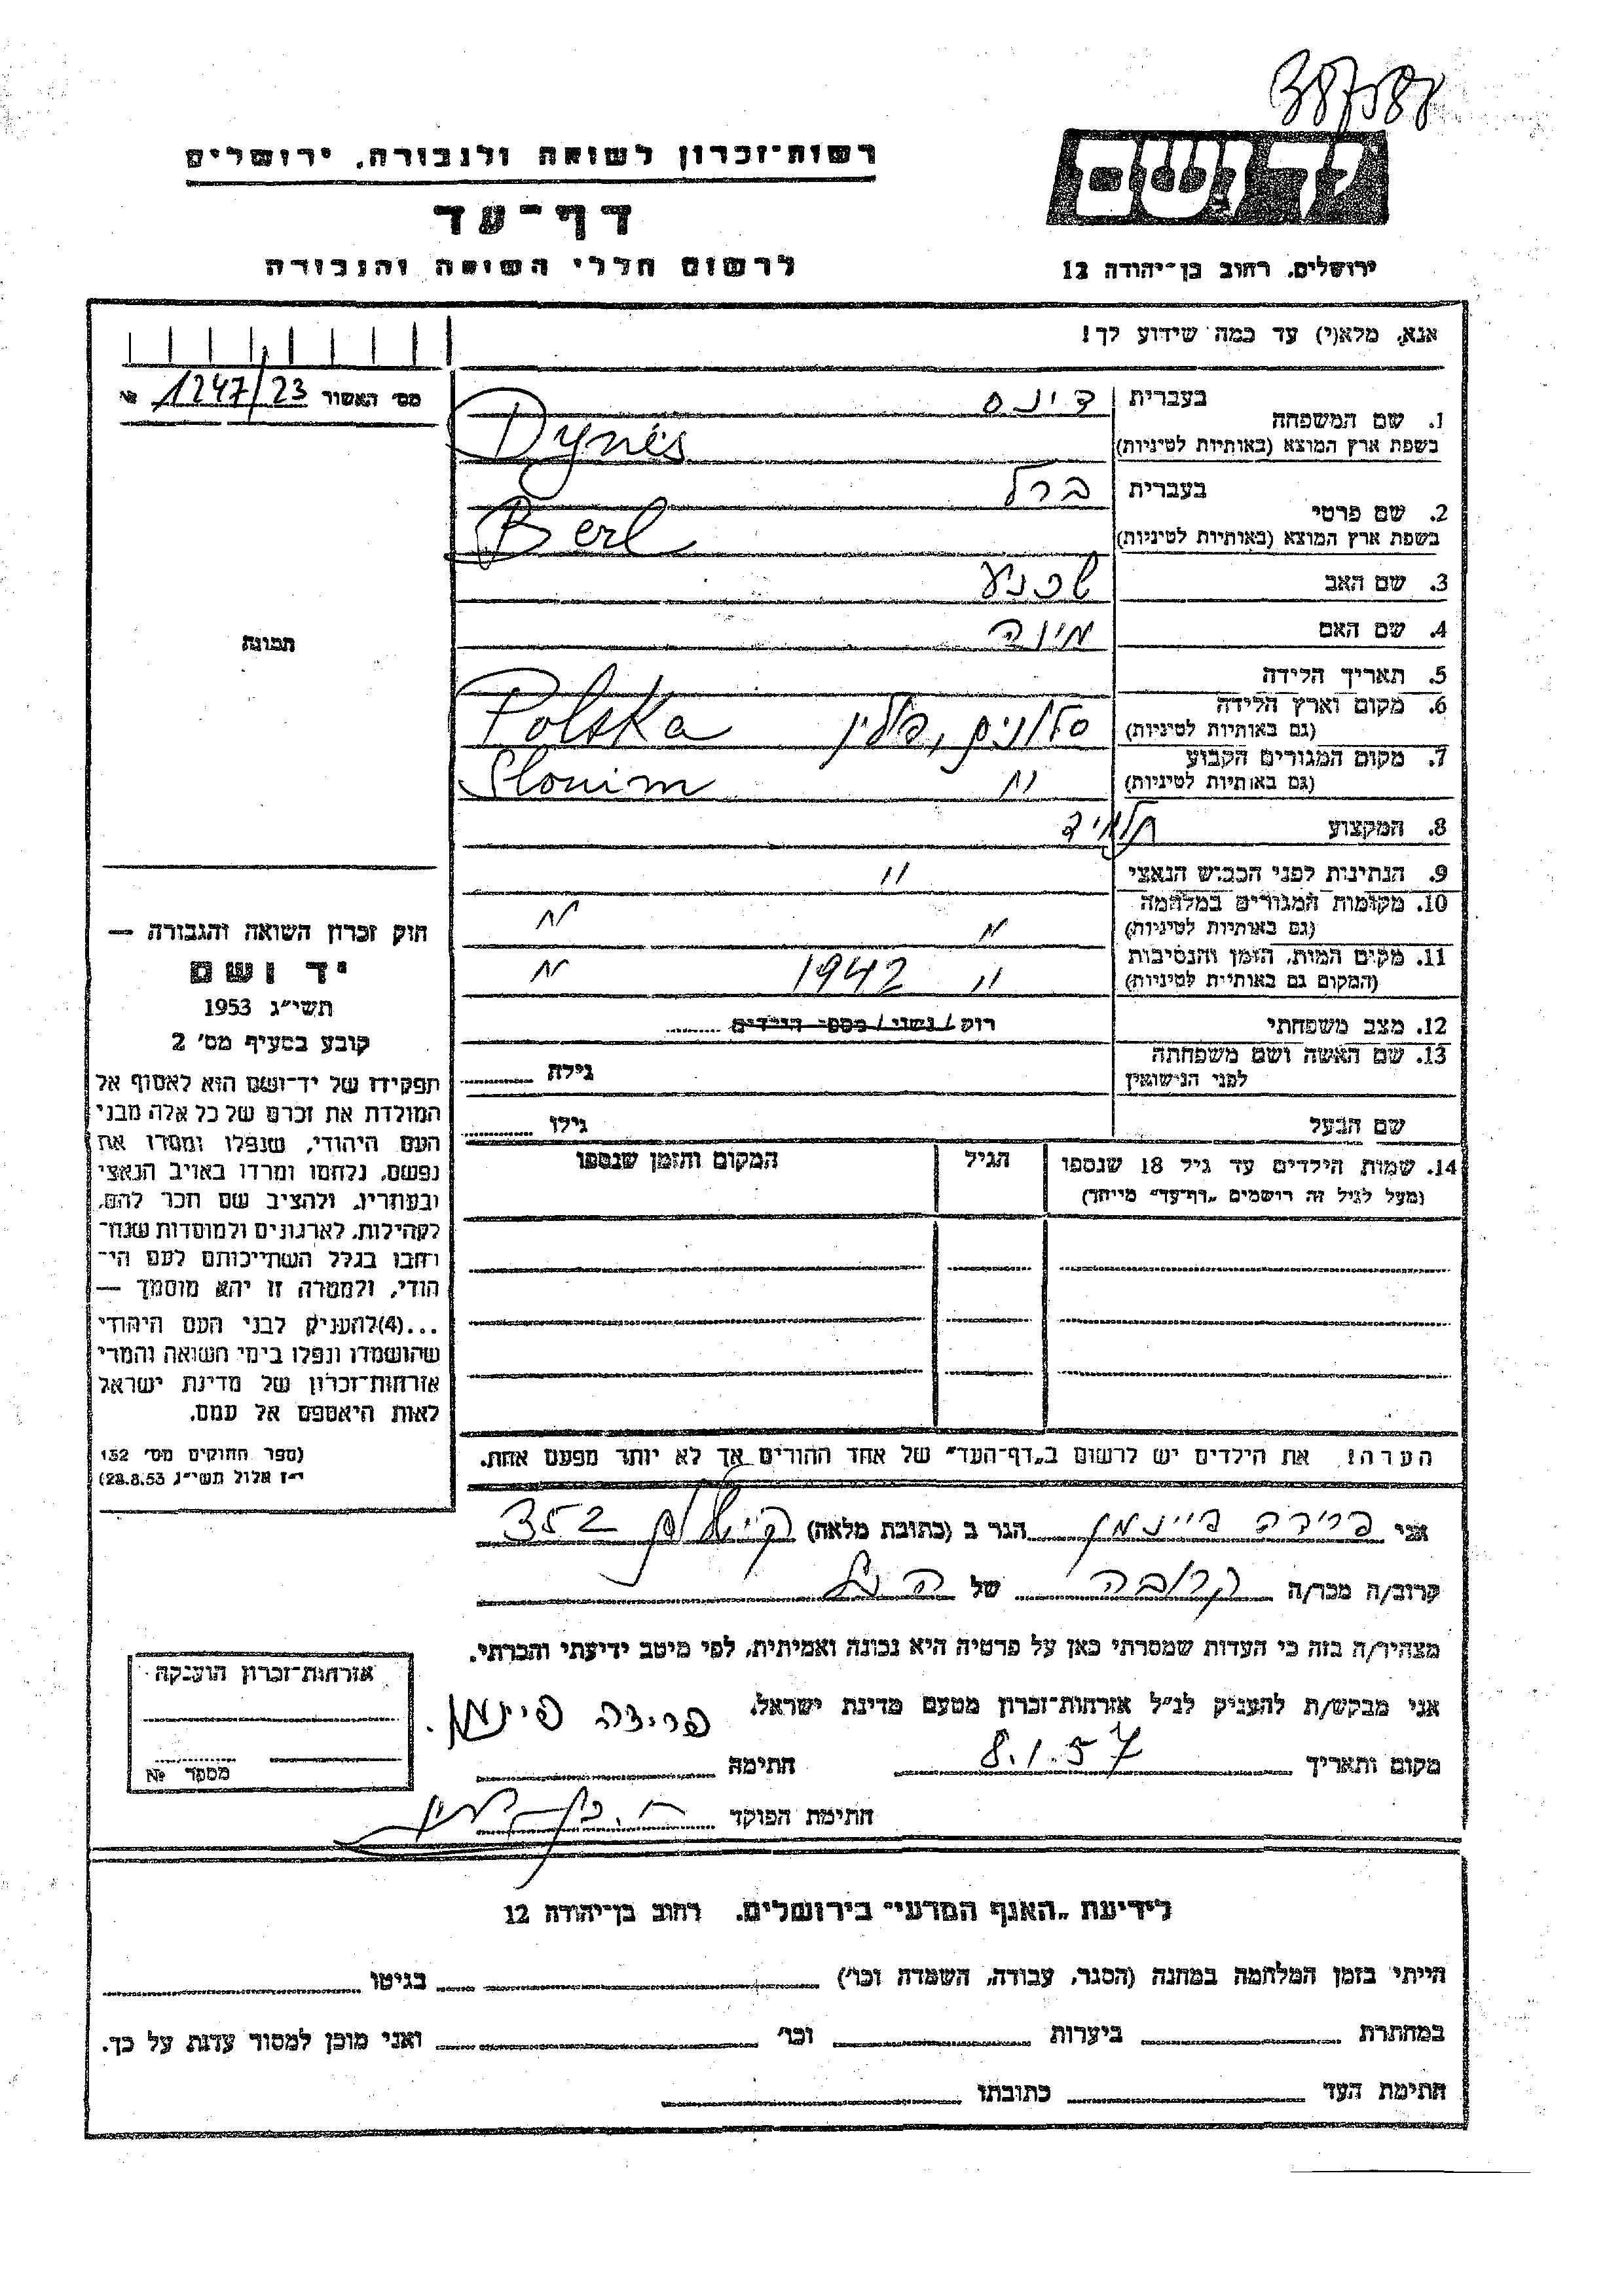 387588
רשות־זכרון לשואה ולגבורה, ירושלים
יד ושם
דף־עד
לרשום חללי השואה והגבורה
ירושלים, רחוב בן־יהודה 12
אנא, מלא(י) עד כמה שידוע לך!
מס' האשור 1247/23 №
1. שם המשפחה בעברית דינס
בשפת ארץ המוצא (באותיות לטיניות) Dynes
2. שם פרטי בעברית ברל
בשפת ארץ המוצא (באותיות לטיניות) Berl
3. שם האב שכניע
4. שם האם מינה
תמונה
5. תאריך הלידה
6. מקום וארץ הלידה (גם באותיות לטיניות) סלונים, פולין Polska
7. מקום המגורים הקבוע (גם באותיות לטיניות) " Slonim
8. המקצוע תלמיד
9. הנתינות לפני הכבוש הנאצי "
10. מקומות המגורים במלחמה (גם באותיות לטיניות) " "
11. מקום המות, הזמן והנסיבות (המקום גם באותיות לטיניות) " 1942 "
12. מצב משפחתי רווק/נשוי/מספר הילדים
13. שם האשה ושם משפחתה לפני הנישואין גילה
שם הבעל גילו
14. שמות הילדים עד גיל 18 שנספו הגיל המקום והזמן שנספו
(מעל לגיל זה רושמים „דף־עד" מייחד)
הערה! את הילדים יש לרשום ב„דף־העד" של אחד ההורים אך לא יותר מפעם אחת.
חוק זכרון השואה והגבורה —
יד ושם
תשי"ג 1953
קובע בסעיף מס' 2
תפקידו של יד־ושם הוא לאסוף אל
המולדת את זכרם של כל אלה מבני
העם היהודי, שנפלו ומסרו את
נפשם, נלחמו ומרדו באויב הנאצי
ובעוזריו, ולהציב שם וזכר להם,
לקהילות, לארגונים ולמוסדות שנח־
רבו בגלל השתייכותם לעם הי־
הודי, ולמטרה זו יהא מוסמך —
...(4)להעניק לבני העם היהודי
שהושמדו ונפלו בימי השואה והמרי
אזרחות־זכרון של מדינת ישראל
לאות היאספם אל עמם.
(ספר החוקים מס' 132
י"ז אלול תשי"ג 28.8.53)
אני פרידה פיינמן הגר ב (כתובת מלאה) 352
קרוב/ה מכר/ה קרובה של הנ"ל
מצהיר/ה בזה כי העדות שמסרתי כאן על פרטיה היא נכונה ואמיתית, לפי מיטב ידיעתי והכרתי.
אני מבקש/ת להעניק לנ"ל אזרחות־זכרון מטעם מדינת ישראל.
מקום ותאריך 8.1.57 חתימה פרידה פיינמן
חתימת הפוקד
אזרחות־זכרון הוענקה
מספר №
לידיעת „האגף המדעי" בירושלים, רחוב בן־יהודה 12
הייתי בזמן המלחמה במחנה (הסגר, עבודה, השמדה וכו') בגיטו
במחתרת ביערות וכו' ואני מוכן למסור עדות על כך.
חתימת העד כתובתו